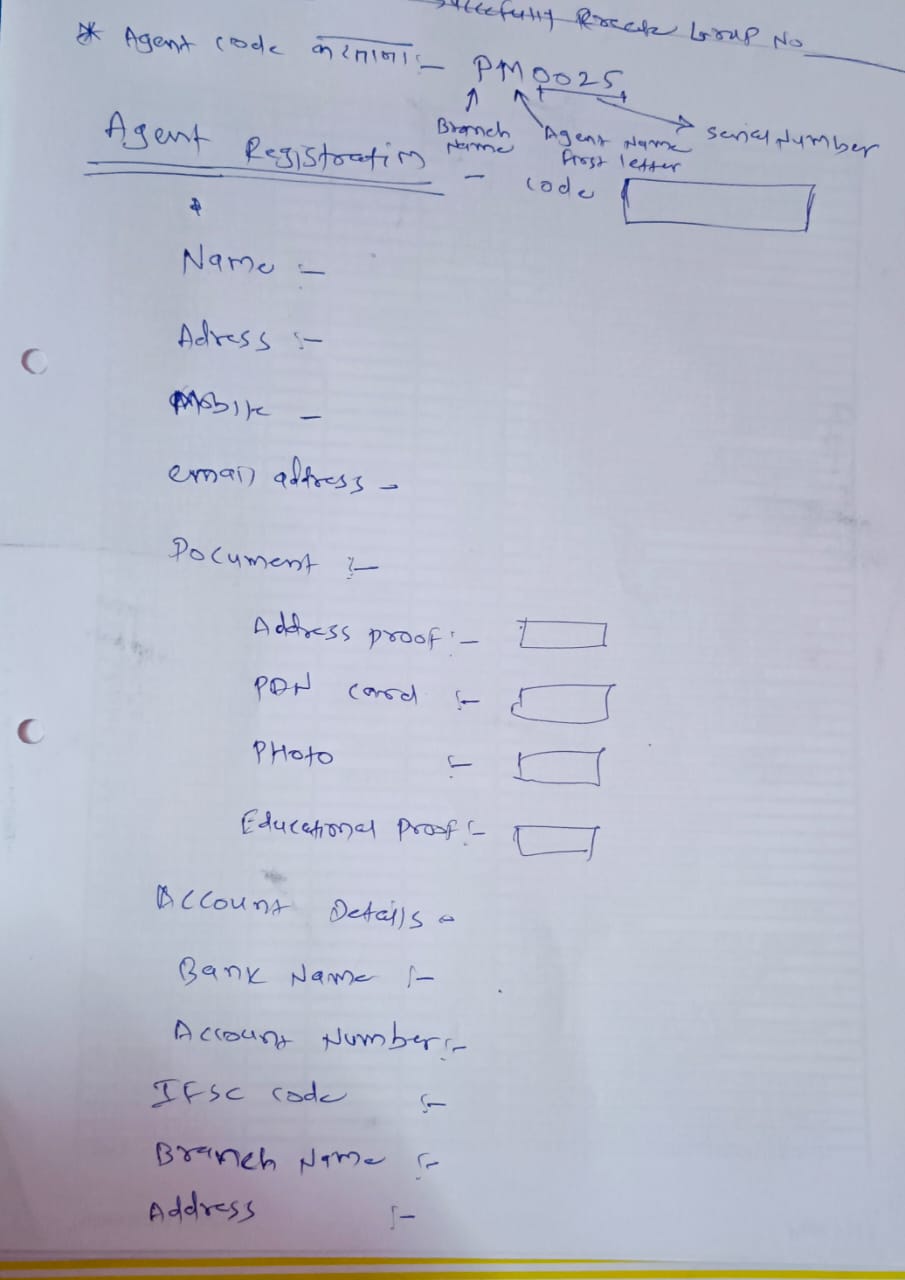 Group No
* Agent code बनवताना :- PM0025
Branch Name
Agent Name First letter
serial Number
Agent Registration - code
Name :-
Adress :-
Mobile -
email address -
Document :-
Address proof :-
PAN card :-
PHoto :-
Educational Proof :-
Account Details -
Bank Name :-
Account Number :-
IFSC code :-
Branch Name :-
Address :-